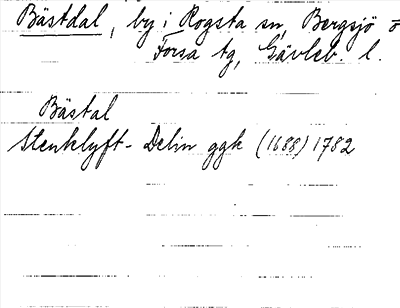 Bästdal, by i Rogsta sn, Bergsjö o
Forsa tg, Gävleb. l.
Bästal
Stenklyft- Delin ggk (1688) 1782